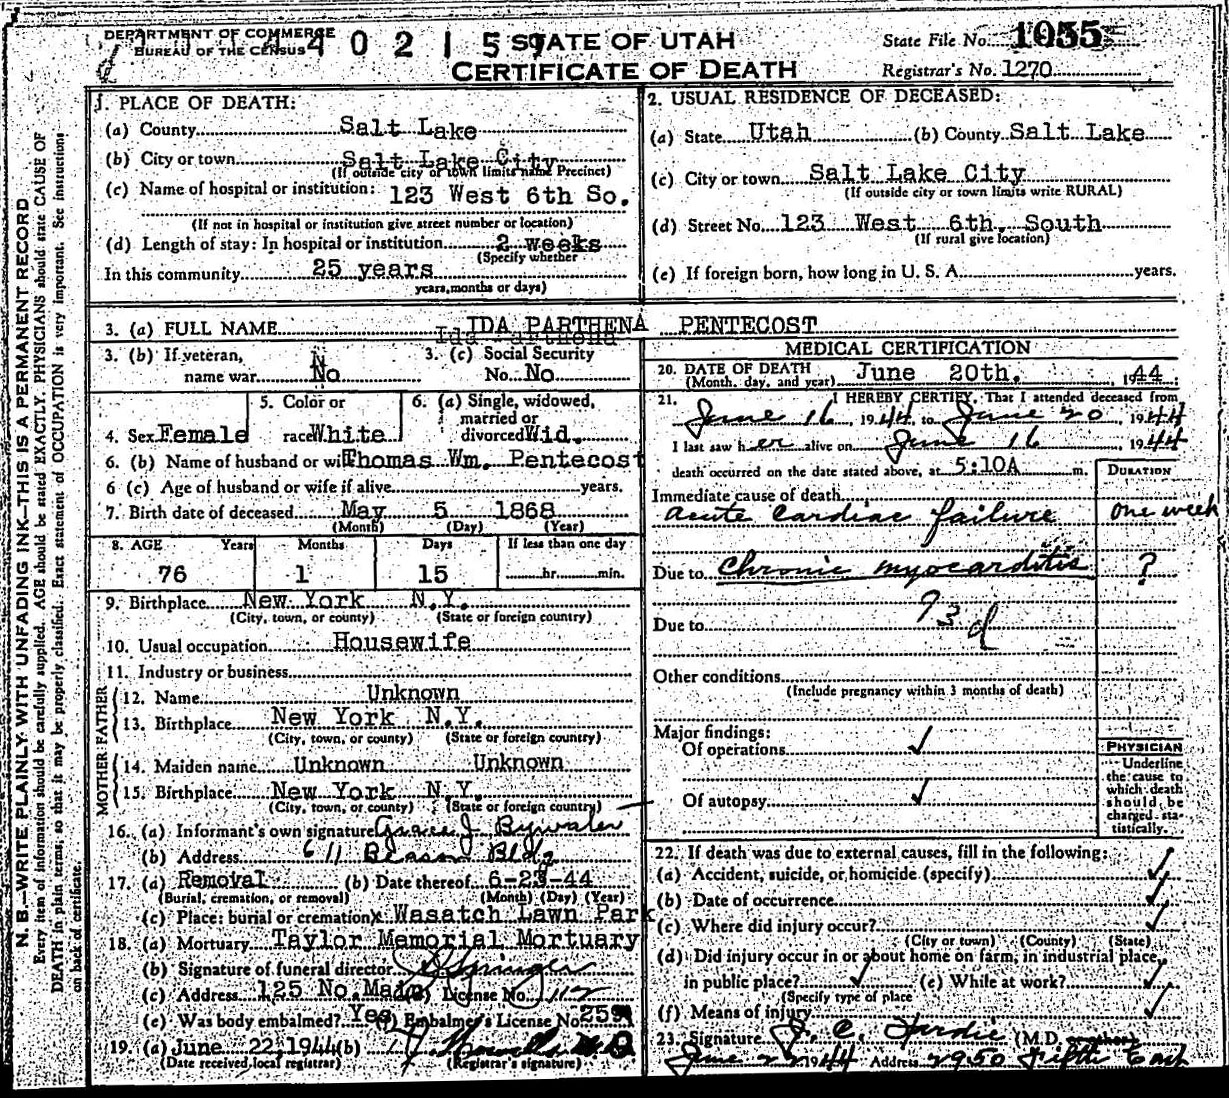 DEPARTMENT OF COMMERCE
BUREAU OF THE CENSUS
4 4 0 2 1 5 9
STATE OF UTAH
CERTIFICATE OF DEATH
State File No. 1055
Registrar's No. 1270
N. B.—WRITE PLAINLY WITH UNFADING INK—THIS IS A PERMANENT RECORD
Every item of information should be carefully supplied. AGE should be stated EXACTLY. PHYSICIANS should state CAUSE OF
DEATH in plain terms, so that it may be properly classified. Exact statement of OCCUPATION is very important. See instructions
on back of certificate.
1. PLACE OF DEATH:
(a) County Salt Lake
(b) City or town Salt Lake City
(If outside city or town limits name Precinct)
(c) Name of hospital or institution: 123 West 6th So.
(If not in hospital or institution give street number or location)
(d) Length of stay: In hospital or institution 2 weeks
(Specify whether
In this community 25 years
years, months or days)
2. USUAL RESIDENCE OF DECEASED:
(a) State Utah (b) County Salt Lake
(c) City or town Salt Lake City
(If outside city or town limits write RURAL)
(d) Street No. 123 West 6th. South
(If rural give location)
(e) If foreign born, how long in U. S. A. years.
3. (a) FULL NAME IDA PARTHENA PENTECOST
Ida Parthena
3. (b) If veteran, N
name war No
3. (c) Social Security
No. No
4. Sex Female
5. Color or
race White
6. (a) Single, widowed,
married or
divorced Wid.
6. (b) Name of husband or wife Thomas Wm. Pentecost
6 (c) Age of husband or wife if alive years.
7. Birth date of deceased May 5 1868
(Month) (Day) (Year)
8. AGE Years Months Days If less than one day
76 1 15 hr. min.
9. Birthplace New York N.Y.
(City, town, or county) (State or foreign country)
10. Usual occupation Housewife
11. Industry or business
FATHER
12. Name Unknown
13. Birthplace New York N.Y.
(City, town, or county) (State or foreign country)
MOTHER
14. Maiden name Unknown Unknown
15. Birthplace New York N.Y.
(City, town, or county) (State or foreign country)
16. (a) Informant's own signature Grace J. Bywater
(b) Address 611 Beason Bldg
17. (a) Removal (b) Date thereof 6-23-44
(Burial, cremation, or removal) (Month) (Day) (Year)
(c) Place: burial or cremation Wasatch Lawn Park
18. (a) Mortuary Taylor Memorial Mortuary
(b) Signature of funeral director Springer
(c) Address 125 No. Main (d) License No. 112
(e) Was body embalmed? Yes (f) Embalmer's License No. 259
19. (a) June 22, 1944 (b)
(Date received local registrar) (Registrar's signature)
MEDICAL CERTIFICATION
20. DATE OF DEATH
(Month, day, and year) June 20th, 1944.
21. I HEREBY CERTIFY, That I attended deceased from
June 16, 1944 to June 20 1944
I last saw her alive on June 16 1944
death occurred on the date stated above, at 5:10A m.
DURATION
Immediate cause of death
acute cardiac failure one week
Due to Chronic myocarditis ?
93 d
Due to
Other conditions
(Include pregnancy within 3 months of death)
Major findings:
Of operations ✓
Of autopsy ✓
PHYSICIAN
Underline
the cause to
which death
should be
charged sta-
tistically.
22. If death was due to external causes, fill in the following:
(a) Accident, suicide, or homicide (specify) ✓
(b) Date of occurrence ✓
(c) Where did injury occur? ✓
(City or town) (County) (State)
(d) Did injury occur in or about home on farm, in industrial place,
in public place? ✓ (e) While at work? ✓
(Specify type of place
(f) Means of injury ✓
23. Signature J. C. Hardie (M.D.
June 22 1944 Address 2950 Fifth East